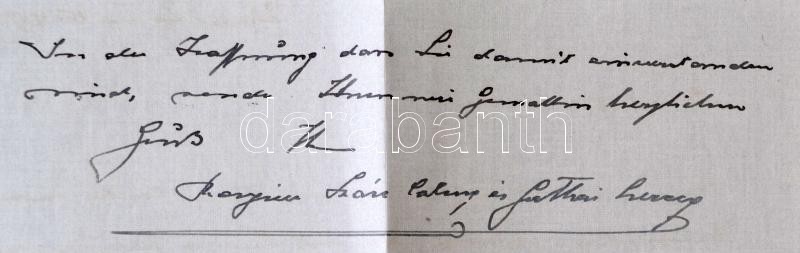 In der Hoffnung dass Sie damit einverstanden
sind, sende Ihnen mei Gemahlin herzlichen
Gruß Ihr
Szász Coburg és Gothai herceg
darabanth